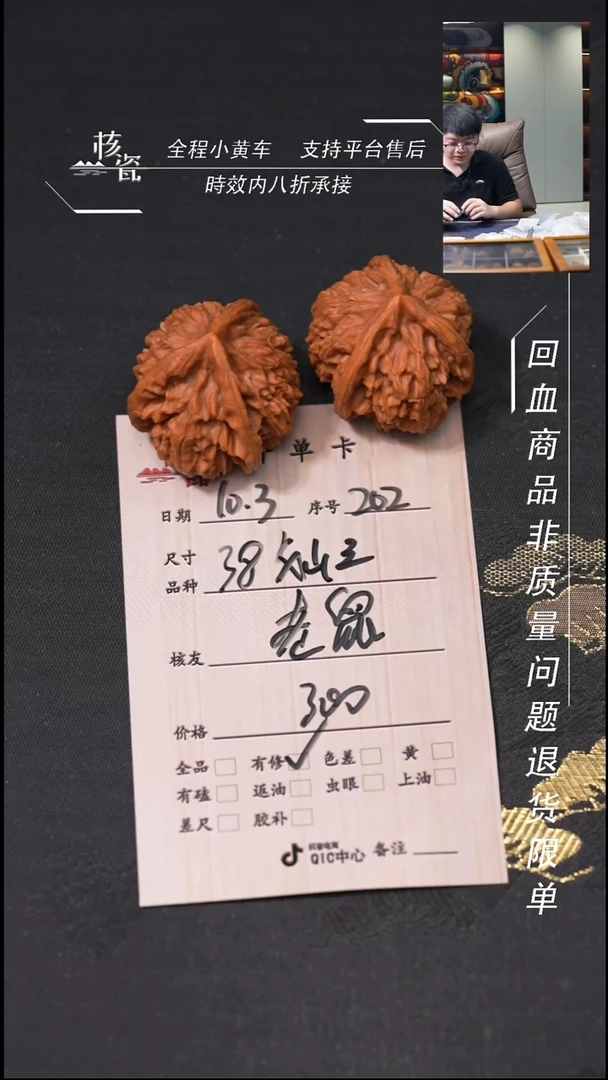 核瓷
全程小黄车 支持平台售后
時效内八折承接
回血商品非质量问题退货限单
单卡
日期 10.3 序号 202
尺寸
品种 38
核友 老鼠
价格 300
全品 有修 色差 黄
有磕 返油 虫眼 上油
差尺 胶补
抖音电商
QIC中心 备注